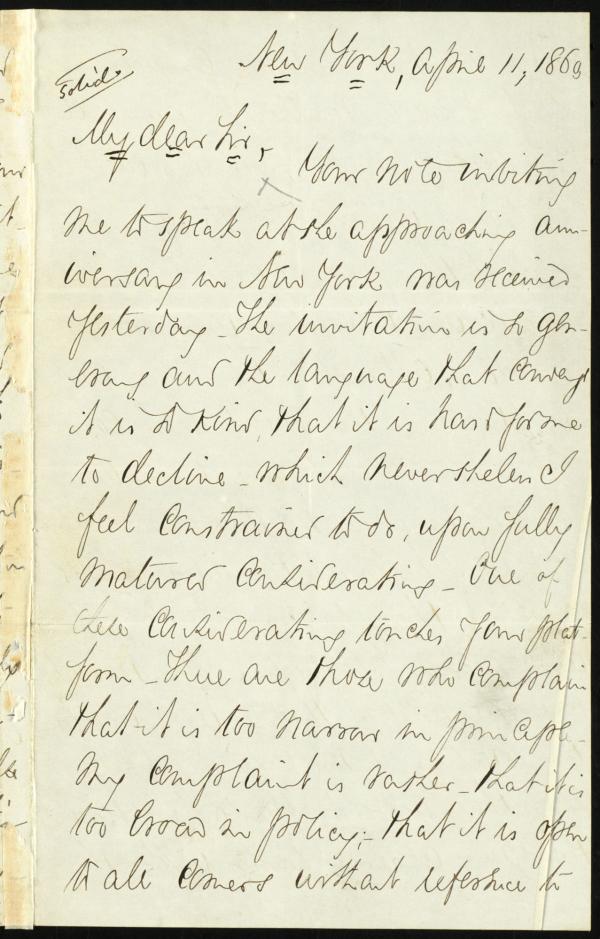 New York, April 11, 1860
Solid
My dear Sir,
Your note inviting
me to speak at the approaching ann-
iversary in New York was received
yesterday – The invitation is so gen-
erous and the language that conveys
it is so kind, that it is hard for me
to decline – which nevertheless I
feel constrained to do, upon fully
matured considerations – One of
these considerations touches your plat-
form – There are those who complain
that it is too narrow in principle –
My complaint is rather – that it is
too broad in policy; – that it is open
to all comers without reference to